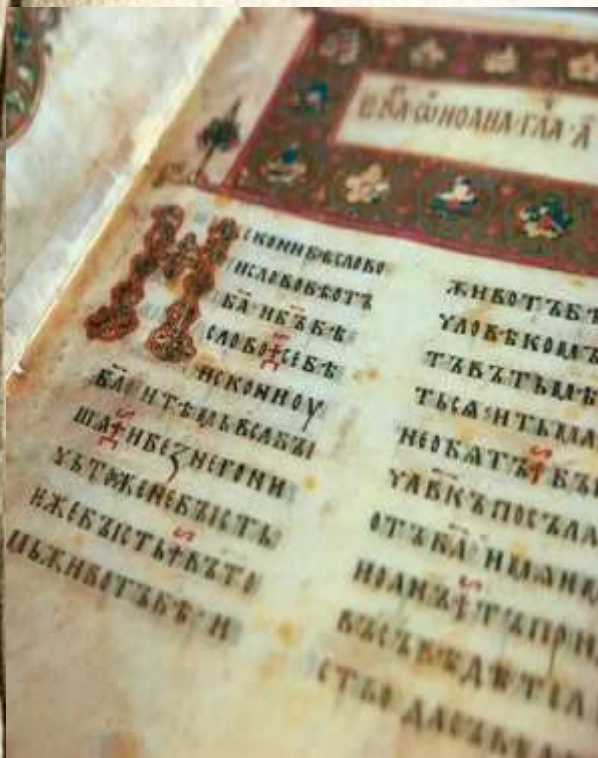 ЕВ҃А·Ѡ ИОАНА·ГЛ҃А·А҃
ИСКОНИБѢСЛОВО
ИСЛОВОБѢОТЪ
Б҃А·ИБ҃ЪБѢ
СЛОВО⁜СЕБѢ
ИСКОНИОУ
Б҃А·ИТѢМЬВЬСАБЪІ
ША⁜ИБЕЗНЕГОНИ
ЧЬТОЖЕНЕБЪІСТЬ·
ЕЖЕБЪІСТЬ⁜ВЪТО
МЬЖИВОТЪБѢ·И
ЖИВОТЪБѢ
ЧЛОВѢКОМЪ
ТЪВЪТЬМѢ
ТЬСѦ·ИТЬМА
НЕОБѦТЪ⁜БЪІ
ЧЛ҃ВКЪПОСЪЛА
ОТЪБ҃А·ИМѦИ
ИОАНЪ⁜ТЪПРИ
ВЪСЪВѢДѢТЕЛ
СТВО·ДАСЪВѢ